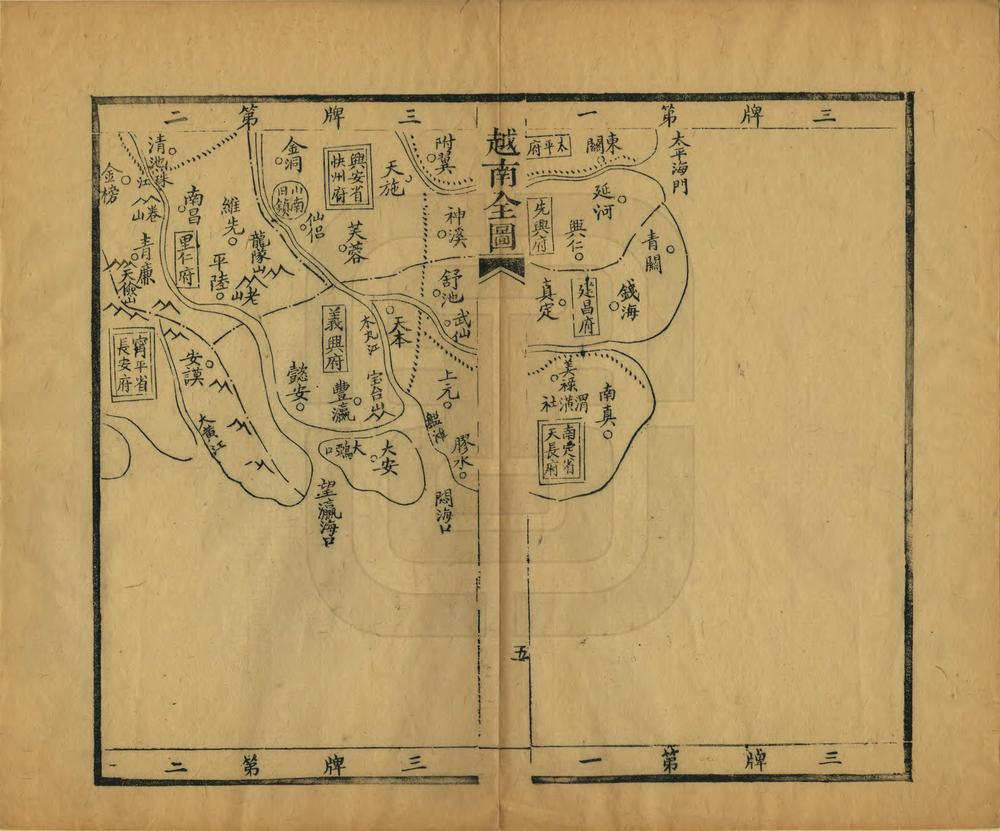 三牌第一
太平海門
東關
太平府
延河
興仁
先興府
青關
錢海
建昌府
真定
美祿
渭潢社
南真
南定省
天長府
三牌第一
越南全圖
五
三牌第二
附翼
天施
興安省
快州府
金洞
山南
旧鎮
仙侣
芙蓉
神溪
舒池
武仙
清池
珠江
金榜
卷山
南昌
維先
龍隊山
青廉
里仁府
平陸
老山
天儉山
義興府
本丸江
天本
甯平省
長安府
安謨
懿安
豐瀛
宝台山
上元
膠水
大黃江
大鴉口
大安
望瀛海口
悶海口
三牌第二